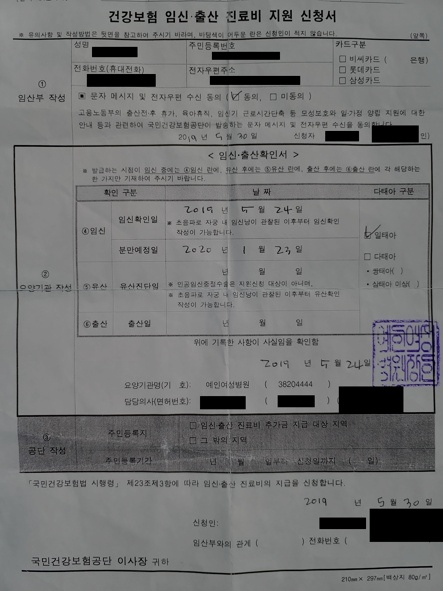 건강보험 임신·출산 진료비 지원 신청서
※ 유의사항 및 작성방법은 뒷면을 참고하여 주시기 바라며, 바탕색이 어두운 란은 신청인이 적지 않습니다. (앞쪽)
성명 주민등록번호 카드구분
전화번호(휴대전화) 전자우편주소
□ 비씨카드 ( 은행)
□ 롯데카드
□ 삼성카드
① 임산부 작성
문자 메시지 및 전자우편 수신 동의 ( 동의, □ 미동의 )
고용노동부의 출산전·후 휴가, 육아휴직, 임신기 근로시간단축 등 모성보호와 일가정 양립 지원에 대한
안내 등과 관련하여 국민건강보험공단이 발송하는 문자 메시지 및 전자우편 수신을 동의합니다.
2019 년 5 월 30 일 신청자
< 임신·출산확인서 >
※ 발급하는 시점이 임신 중에는 ④임신 란에, 유산 후에는 ⑤유산 란에, 출산 후에는 ⑥출산 란에 각 해당하는
한 가지만 기재하여 주시기 바랍니다.
확인 구분 날 짜 다태아 구분
② 요양기관 작성
④임신 임신확인일 2019 년 5 월 24 일
※ 초음파로 자궁 내 임신낭이 관찰된 이후부터 임신확인
작성이 가능합니다.
분만예정일 2020 년 1 월 23 일
일태아
□ 다태아
• 쌍태아( )
• 삼태아 이상( )
⑤유산 유산진단일 년 월 일
※ 인공임신중절수술은 지원신청 대상이 아니며,
※ 초음파로 자궁 내 임신낭이 관찰된 이후부터 유산확인
작성이 가능합니다.
⑥출산 출산일 년 월 일
위에 기록한 사항이 사실임을 확인함
2019 년 5 월 24 일
요양기관명(기 호): 여인여성병원 ( 38204444 )
담당의사(면허번호): ( )
③ 공단 작성
주민등록지 □ 임신·출산 진료비 추가금 지급 대상 지역
□ 그 밖의 지역
주민등록기간 년 월 일부터 신청일까지 ( 일)
「국민건강보험법 시행령」 제23조제3항에 따라 임신·출산 진료비의 지급을 신청합니다.
2019 년 5 월 30 일
신청인:
임산부와의 관계 ( ) 전화번호 (
국민건강보험공단 이사장 귀하
210mm× 297mm[백상지 80g/㎡]